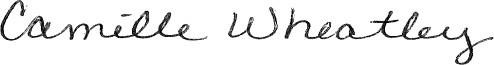 Camille Wheatley